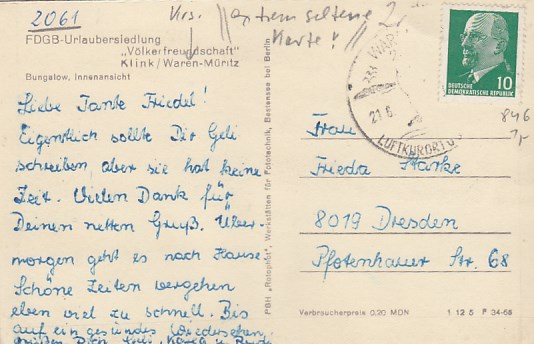 2061
Krs. // extrem seltene
Karte! //
FDGB-Urlaubersiedlung
„Völkerfreundschaft"
Klink/Waren-Müritz
Bungalow, Innenansicht
Liebe Tante Friedel!
Eigentlich sollte Dir Geli
schreiben, aber sie hat keine
Zeit. Vielen Dank für
Deinen netten Gruß. Über-
morgen geht es nach Hause.
Schöne Zeiten vergehen
eben viel zu schnell. Bis
auf ein gesundes Wiedersehen,
grüßen Dich Geli,
PBH „Rotophot", Werkstätten für Fototechnik, Bestensee bei Berlin
21.6.
LUFTKURORT
10
DEUTSCHE
DEMOKRATISCHE REPUBLIK
846
Frau
Frieda Starke
8019 Dresden
Pfotenhauer Str. 68
Verbraucherpreis 0,20 MDN
1 12 5 P 34-66